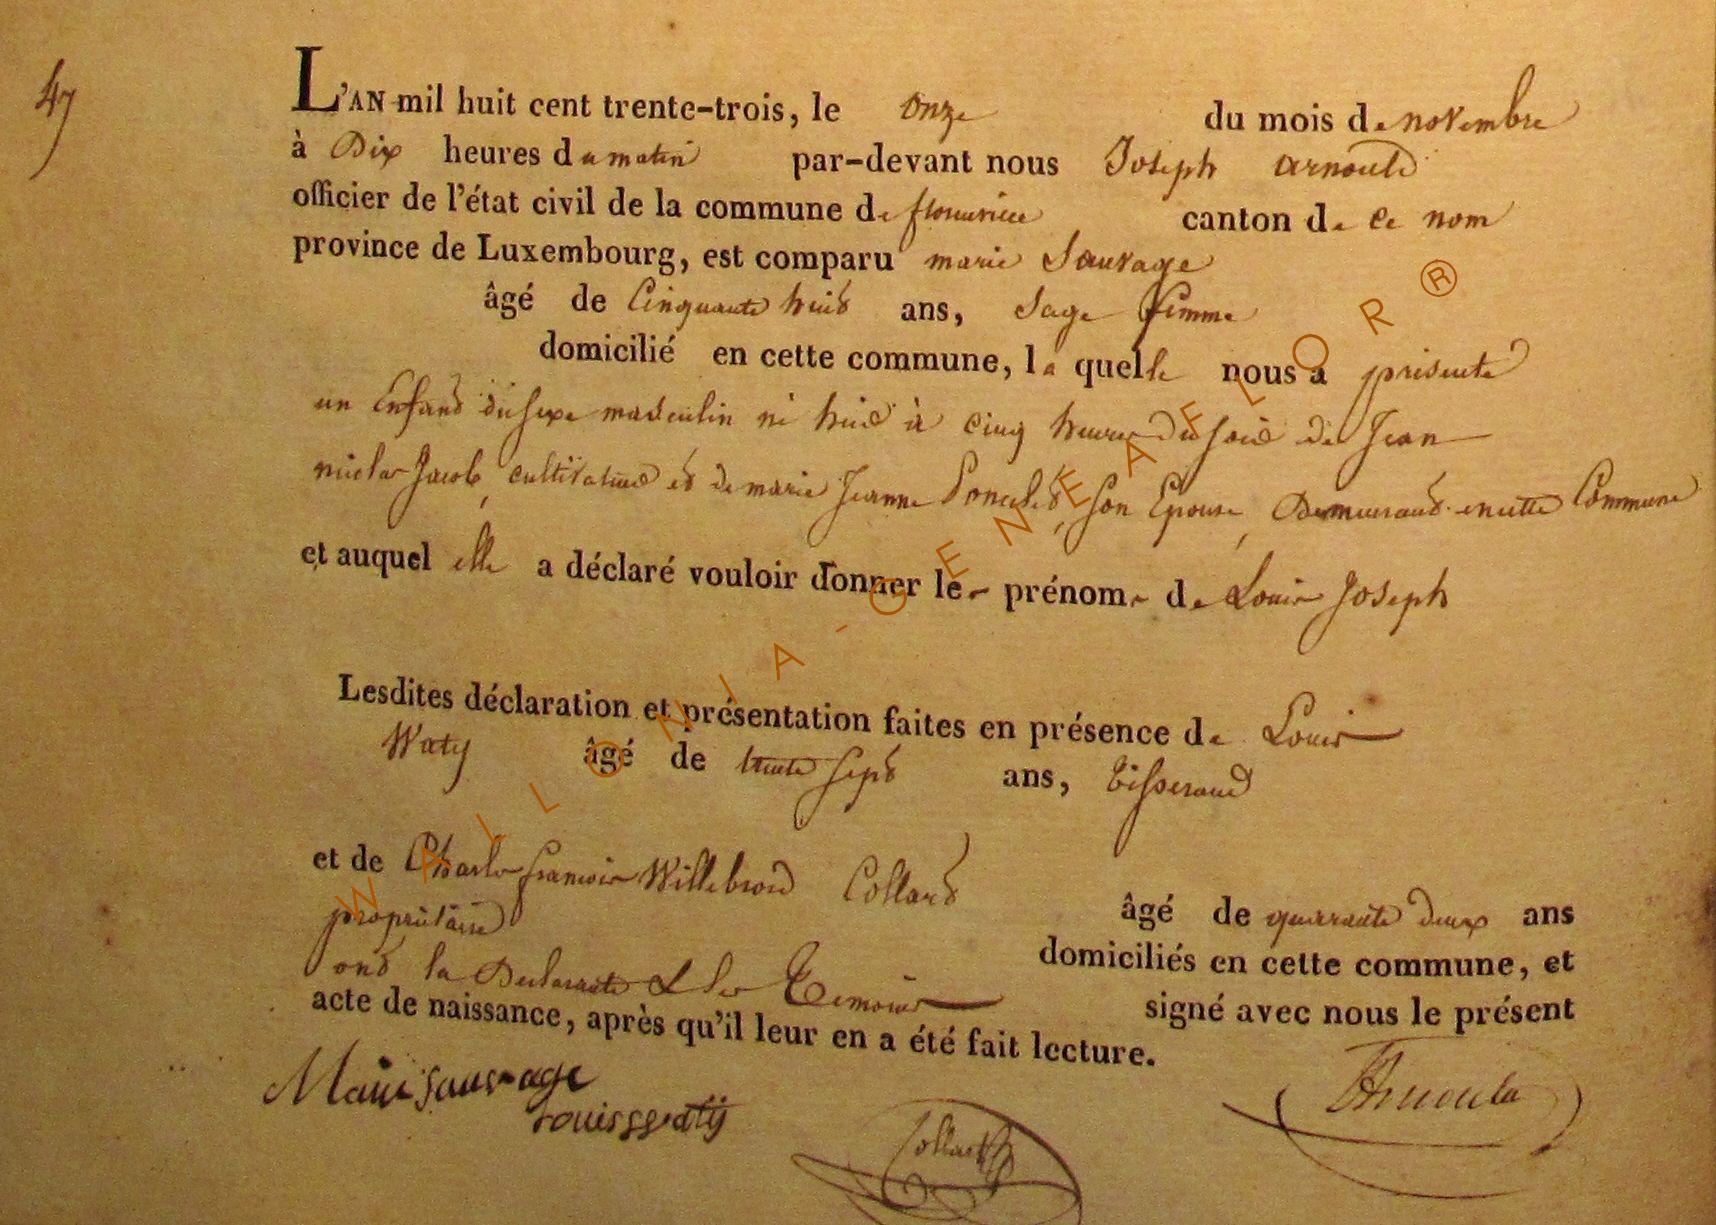 47
L'AN mil huit cent trente-trois, le onze du mois de novembre
à Dix heures du matin par-devant nous Joseph arnould
officier de l'état civil de la commune de florenville canton de ce nom
province de Luxembourg, est comparu marie Sauvage
âgé de Cinquante huit ans, Sage femme
domicilié en cette commune, la quelle nous a présenté
un Enfant du sexe masculin né hier à cinq heures du soir de Jean
nicolas Jacob, cultivateur et de marie Jeanne Poncelet, son Epouse, Demeurant en cette Commune
et auquel elle a déclaré vouloir donner les prénoms de Louis Joseph
Lesdites déclaration et présentation faites en présence de Louis
Waty âgé de trente sept ans, Tisserand
et de Charles françois Willebrord Collard
âgé de quarante deux ans
propriétaire
domiciliés en cette commune, et
ont la Declarante & les Temoins
signé avec nous le présent
acte de naissance, après qu'il leur en a été fait lecture.
Marie sauvage
Louis Watÿ
Collard
JArnould
WALLONIA-GENEAFLOR®